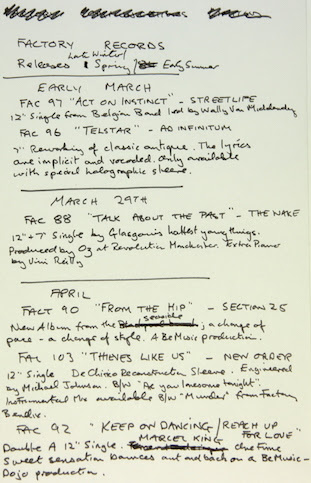 FACTORY RECORDS
Late Winter/
Releases Spring/ Early Summer
EARLY MARCH
FAC 97 "ACT ON INSTINCT" - STREETLIFE
12" Single from Belgian Band led by Wally Van Middendorp
FAC 96 "TELSTAR" - AD INFINITUM
7" Reworking of classic antique. The lyrics
are implicit and vocoded. Only available
with special holographic sleeve.
MARCH 29TH
FAC 88 "TALK ABOUT THE PAST" - THE WAKE
12" + 7" Single by Glasgow's hottest young things.
Produced by Oz at Revolution Manchester. Extra Piano
by Vini Reilly
APRIL
FACT 90 "FROM THE HIP" - SECTION 25
sensible
New Album from the ; a change of
pace - a change of style. A BeMusic production.
FAC 103 "THIEVES LIKE US" - NEW ORDER
12" Single De Chirico Reconstruction Sleeve. Engineered
by Michael Johnson. B/W "Are you lonesome tonight".
Instrumental Mix available B/W "Murder" from Factory
Benelux.
FAC 92 "KEEP ON DANCING/REACH UP
MARCEL KING FOR LOVE"
Double A 12" Single. One Time
Sweet Sensation bounces out and back on a BeMusic-
Dojo production.